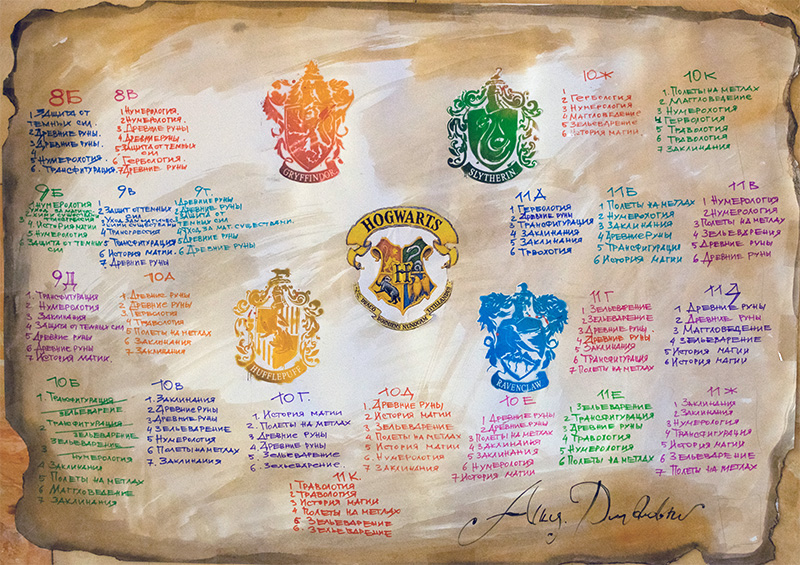 8Б
1. Защита от
темных сил.
2. Древние руны.
3. Древние руны.
4
5. Нумерохогия
6. Трансфигурация
8В
1 Нумерология.
2. Нумерология.
3. Древние руны
4. Древние руны
5 Защита от темных
сил
6. Гербология.
7 Древние руны
GRYFFINDOR
SLYTHERIN
10Ж
1
2 Гербология
3 Нумерология
4 Магловедение
5 Зельеварение
6 История магии.
10К
1. Полеты на метлах
2. Маггловедение
3. Нумерохогия
4 Гербология
5 Траволгия
6 Траволгия
7 Заклинания
9Б
1 Нумерология
4 История магии
5 Нумерология
6 Защита от темных
сил
9В
1
2 Защит от темных
сил
5 Трансфигурация
6 История магии
7 Древние руны
9г.
1 Древние руны
2 Древние руны
3 Защита от
темных сил
4 Уход за маг. существами.
5 Древние руны
6 Древние руны
HOGWARTS
11Д
1 Гербология
2 Древние руны
3 Трансфигурация
4 Заклинания
5 Заклинания
6 Травология
11Б
1 Полеты на метлах
2 Нумерология
3 Заклинания
4 Древние руны
5 Трансфигурация
6 История магии
11В
1 Нумерология
2 Нумерология
3 Полеты на метлах
4 Зельеварения
5 Древние руны
6 Древние руны
9Д
1. Трансфигурация
2 Нумерология
3 Заклинания
4 Защита от темных сил
5 Древние руны
6 Древние руны
7 История магии.
10А
1 Древние руны
2 Древние руны
3 Гербология
4 Травология
5 Полеты на метлах
6 Заклинания
7 Заклинания
HUFFLEPUFF
RAVENCLAW
11Г
1 Зельеварение
2 Зельеварение
3 Древние руны.
4 Древние руны
5 Заклинания
6 Трансфигурация
7 Полеты на метлах
11Д
1 Древние руны
2 Древние руны
3 Маггловедение
4 Зельеварение
5 История магии
6 История магии
10Б
1. Трансфигурация
Зельеварение
2 Трансфигурация
Зельеварение
3 Зельеварение
Нумерология
4 Заклинания
5 Полеты на метлах
6 Маггловедение
7 Заклинания
10В
1. Заклинания
2 Древние руны
3 Древние руны
4 Зельеварение
5 Нумерология
6 Полеты на метлах
7. Заклинания
10Г.
1. История магии
2. Полеты на метлах
3. Древние руны
4 Древние руны
5 Зельеварение
6. Зельеварение.
10Д
1. Древние руны
2 История магии
3. Зельеварение
4 Полеты на метлах
5 История магии
6 Нумерология
7 Заклинания
10Е
1 Древние руны
2 Древние руны
3 Полеты на метлах
4 Заклинания
5 Заклинания
6 Нумерология
7 История магии
11Е
1 Зельеварение
2 Трансфигурация
3 Древние руны
4 Травология
5 Нумерология
6 Полеты на метлах
11Ж
1 Заклинания
2 Заклинания
3 Нумерология
4 Трансфигурация
5 История магия
6 Зельеварение
7 Полеты на метлах
11К.
1 Траволгия
2 Траволгия
3 История магии
4 Полеты на метлах
5 Зельеварение
6. Зельеварение